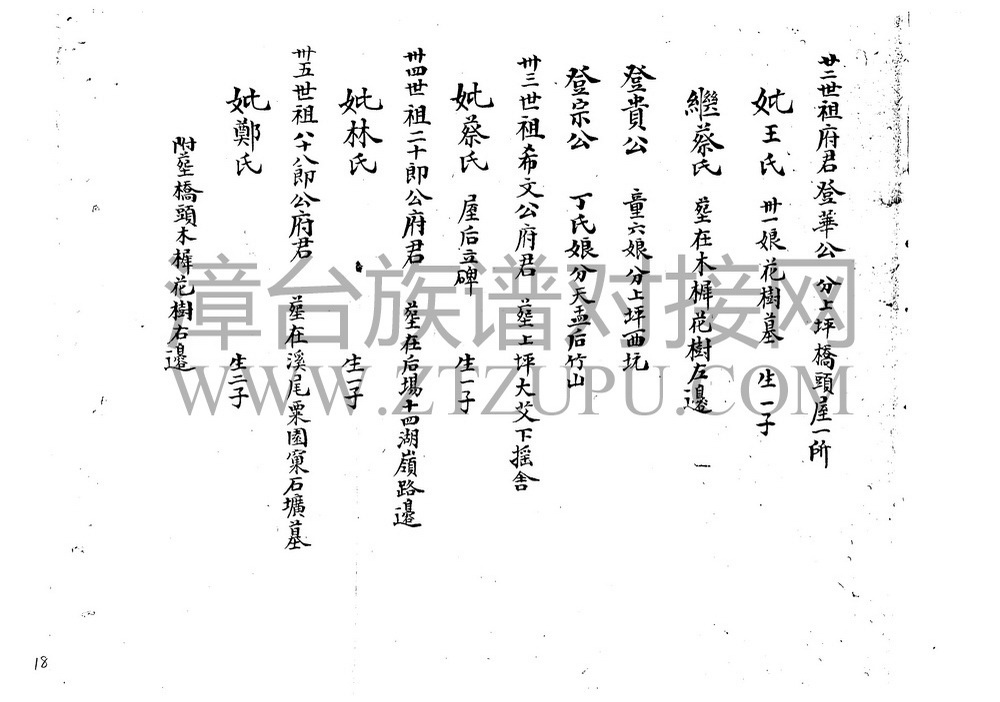 廿二世祖府君登華公 分上坪橋頭屋一所
妣王氏 卅一娘花樹墓 生一子
繼蔡氏 塟在木樨花樹左邊
登貴公 童六娘分上坪西坑
登宗公 丁氏娘分天盂后竹山
卅三世祖希文公府君 塟上坪大艾下摇舍
妣蔡氏 屋后立碑 生一子
卅四世祖二十郎公府君 塟在后塲十四湖嶺路邊
妣林氏 生一子
卅五世祖八十八郎公府君 塟在溪尾粟園窠石壙墓
妣鄭氏 生三子
附塟橋頭木樨花樹右邊
章台族谱对接网
WWW.ZTZUPU.COM
18